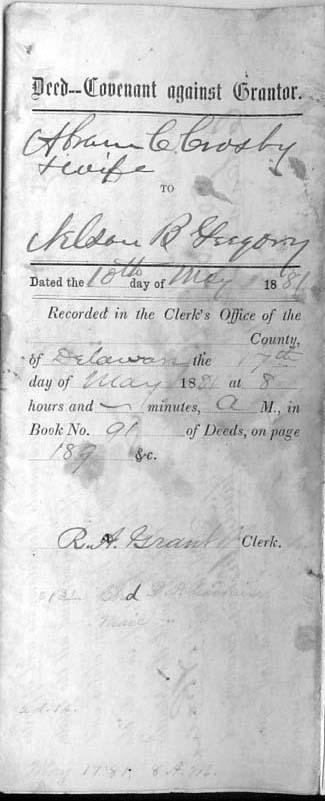 Deed--Covenant against Grantor.
Abram C. Crosby
& wife
TO
Nelson B Gregory
Dated the 10th day of May 1881
Recorded in the Clerk's Office of the
County,
of Delaware the 17th
day of May 1881 at 8
hours and — minutes, A M., in
Book No. 91 of Deeds, on page
189 &c.
R. A. Grant Clerk.
May 17 81, 8 A.M.